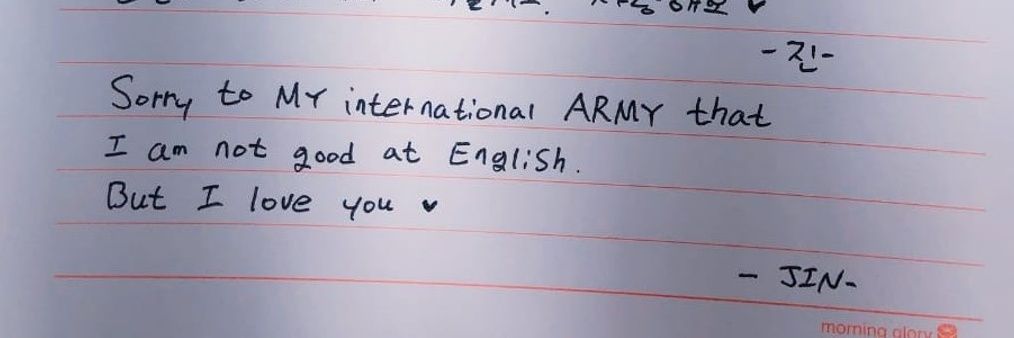 사랑해요 ♥
-진-
Sorry to MY international ARMY that
I am not good at English.
But I love you ♥
- JIN-
morning glory